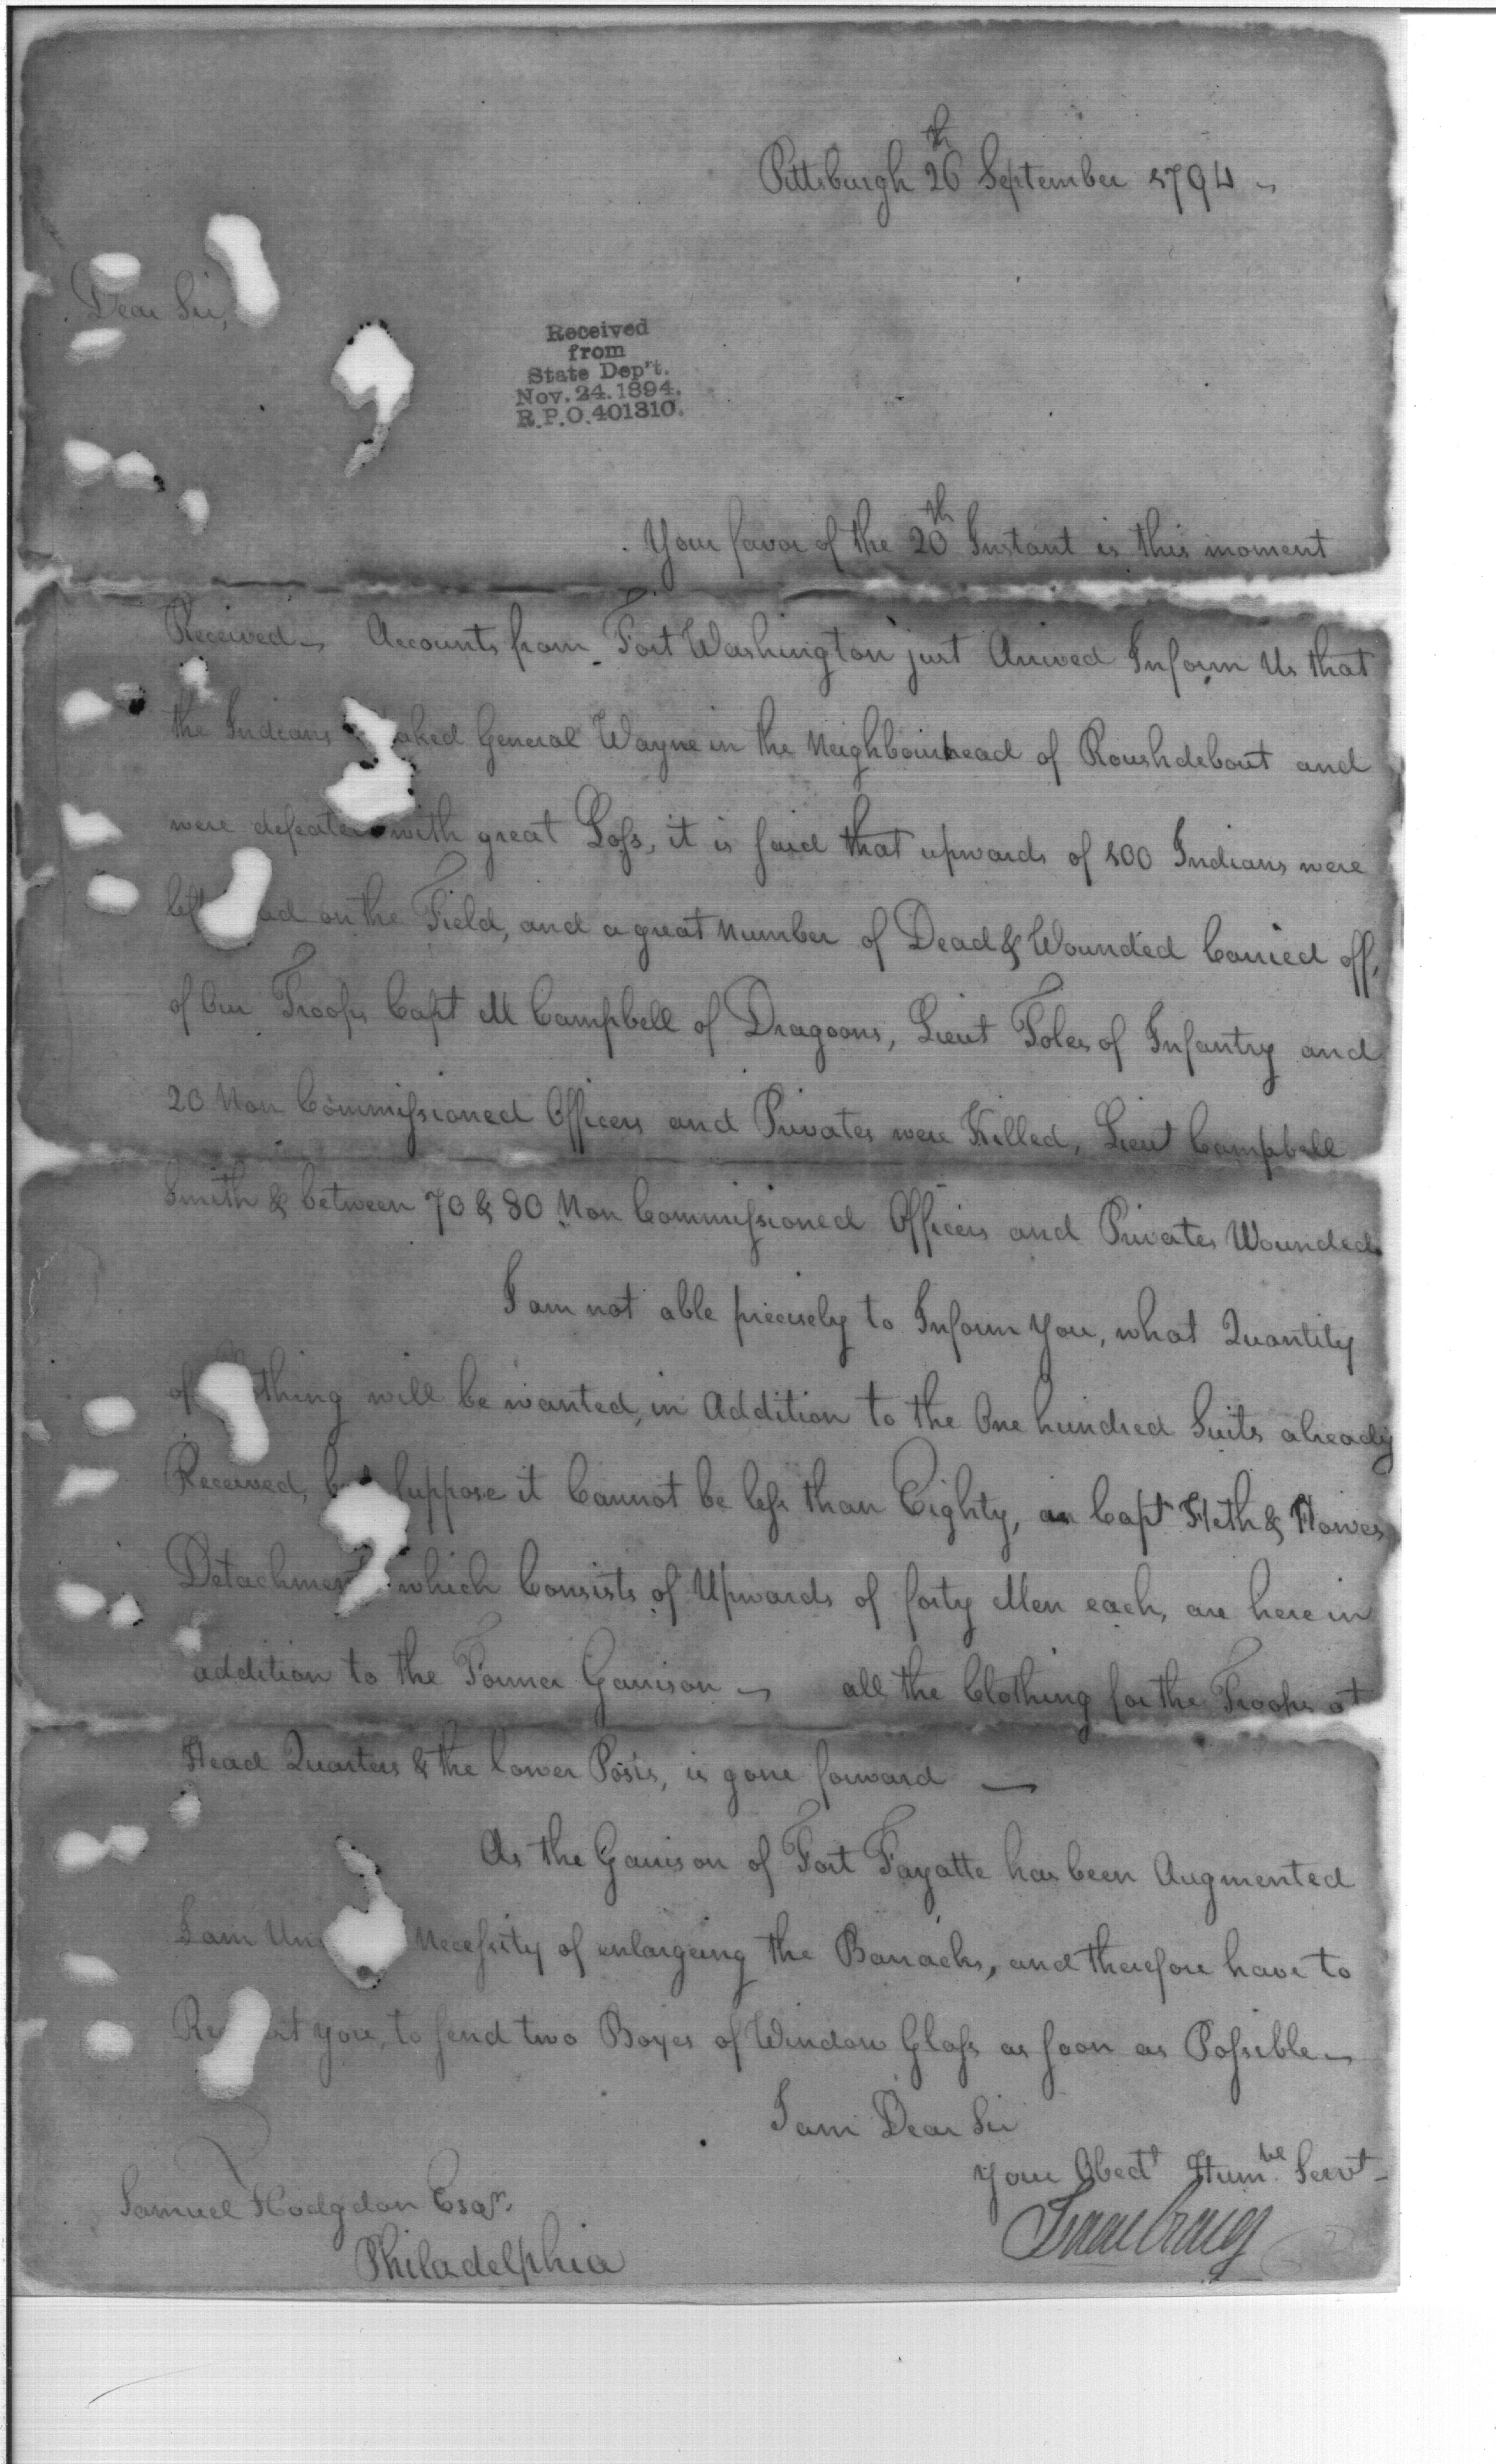 Pittsburgh 26th September 1794
Dear Sir,
Received
from
State Dep't.
Nov. 24. 1894.
R.P.O. 401310.
Your favor of the 20th Instant is this moment
Received Accounts from Fort Washington just Arrived Inform Us that
the Indians aked General Wayne in the Neighbourhead of Roushdebout and
were defeated with great Loss, it is said that upwards of 100 Indians were
left ad on the Field, and a great Number of Dead & Wounded Carried off,
of Our Troops Capt M Campbell of Dragoons, Lieut Toles of Infantry and
20 Non Commissioned Officers and Privates were Killed, Lieut Campbell
Smith & between 70 & 80 Non Commissioned Officers and Privates Wounded
I am not able precisely to Inform You, what Quantity
of thing will be wanted, in Addition to the One hundred Suits already
Received, but Suppose it Cannot be less than Eighty, as Capt Heth & Howes
Detachment which Consists of Upwards of forty Men each, are here in
addition to the Former Garrison all the Clothing for the Troops at
Head Quarters & the lower Posts, is gone forward
As the Garrison of Fort Fayatte has been Augmented
I am Un Necessity of enlargeing the Barracks, and therefore have to
Re st you, to send two Boxes of Window Glass as soon as Possible
I am Dear Sir
Your Obedt Humble Servt
Isaac Craig
Samuel Hodgdon Esqr.
Philadelphia